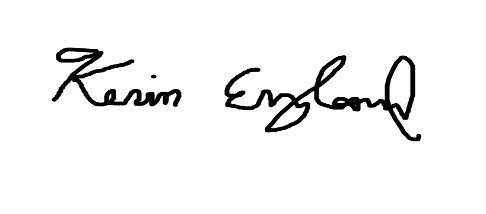 Kevin England